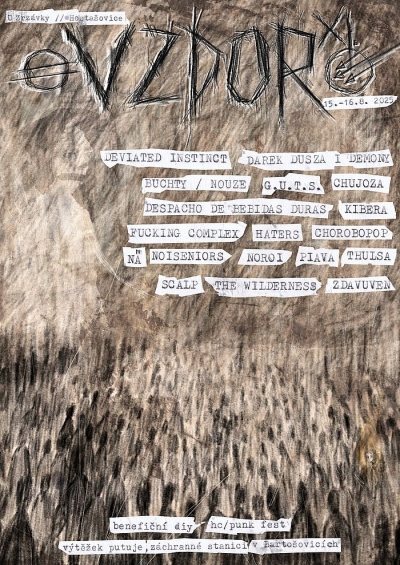 U Zrzávky //@Hostašovice
VZDOR
15.-16.8. 2025
DEVIATED INSTINCT DAREK DUSZA I DEMONY
BUCHTY / NOUZE G.U.T.S. CHUJOZA
DESPACHO DE BEBIDAS DURAS KIBERA
FUCKING COMPLEX HATERS CHOROBOPOP
NÄ NOISENIORS NOROI PIAVA THUISA
SCALP THE WILDERNESS ZDAVUVEN
benefiční diy hc/punk fest
výtěžek putuje záchranné stanici v Bartošovicích